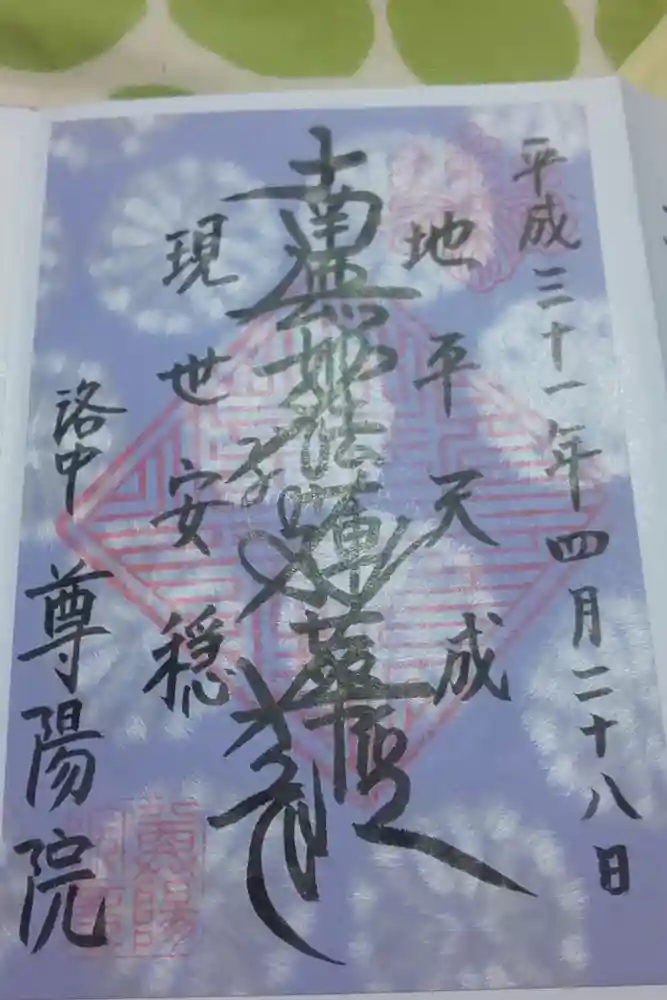 平成三十一年四月二十八日
地平天成
南無妙法蓮華経
現世安穏
洛中 尊陽院